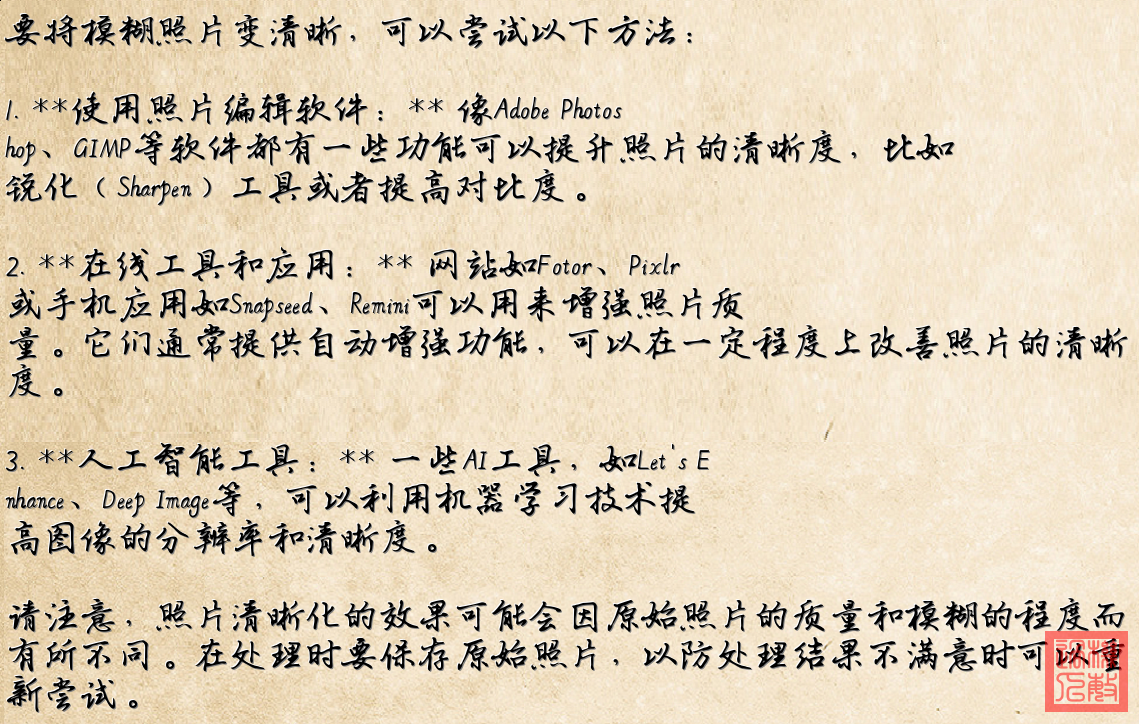 要将模糊照片变清晰，可以尝试以下方法：
1. **使用照片编辑软件：** 像Adobe Photos
hop、GIMP等软件都有一些功能可以提升照片的清晰度，比如
锐化（Sharpen）工具或者提高对比度。
2. **在线工具和应用：** 网站如Fotor、Pixlr
或手机应用如Snapseed、Remini可以用来增强照片质
量。它们通常提供自动增强功能，可以在一定程度上改善照片的清晰
度。
3. **人工智能工具：** 一些AI工具，如Let's E
nhance、Deep Image等，可以利用机器学习技术提
高图像的分辨率和清晰度。
请注意，照片清晰化的效果可能会因原始照片的质量和模糊的程度而
有所不同。在处理时要保存原始照片，以防处理结果不满意时可以重
新尝试。